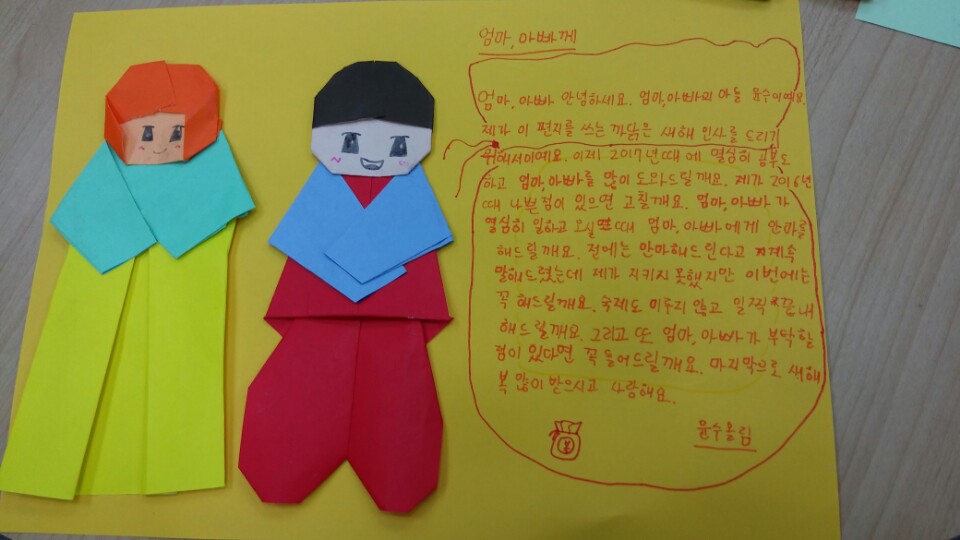 엄마, 아빠께
엄마, 아빠 안녕하세요. 엄마, 아빠의 아들 윤수이예요.
제가 이 편지를 쓰는 까닭은 새해 인사를 드리기
위해서이예요. 이제 2017년때에 열심히 공부도
하고 엄마, 아빠를 많이 도와드릴께요. 제가 2016년
때 나쁜점이 있으면 고칠께요. 엄마, 아빠가
열심히 일하고 오실 때 엄마, 아빠에게 안마를
해드릴께요. 전에는 안마해드린다고 계속
말해드렸는데 제가 지키지 못했지만 이번에는
꼭 해드릴께요. 숙제도 미루지 않고 일찍 끝내
해드릴께요. 그리고 또 엄마, 아빠가 부탁할
점이 있다면 꼭 들어드릴께요. 마지막으로 새해
복 많이 받으시고 사랑해요.
윤수올림